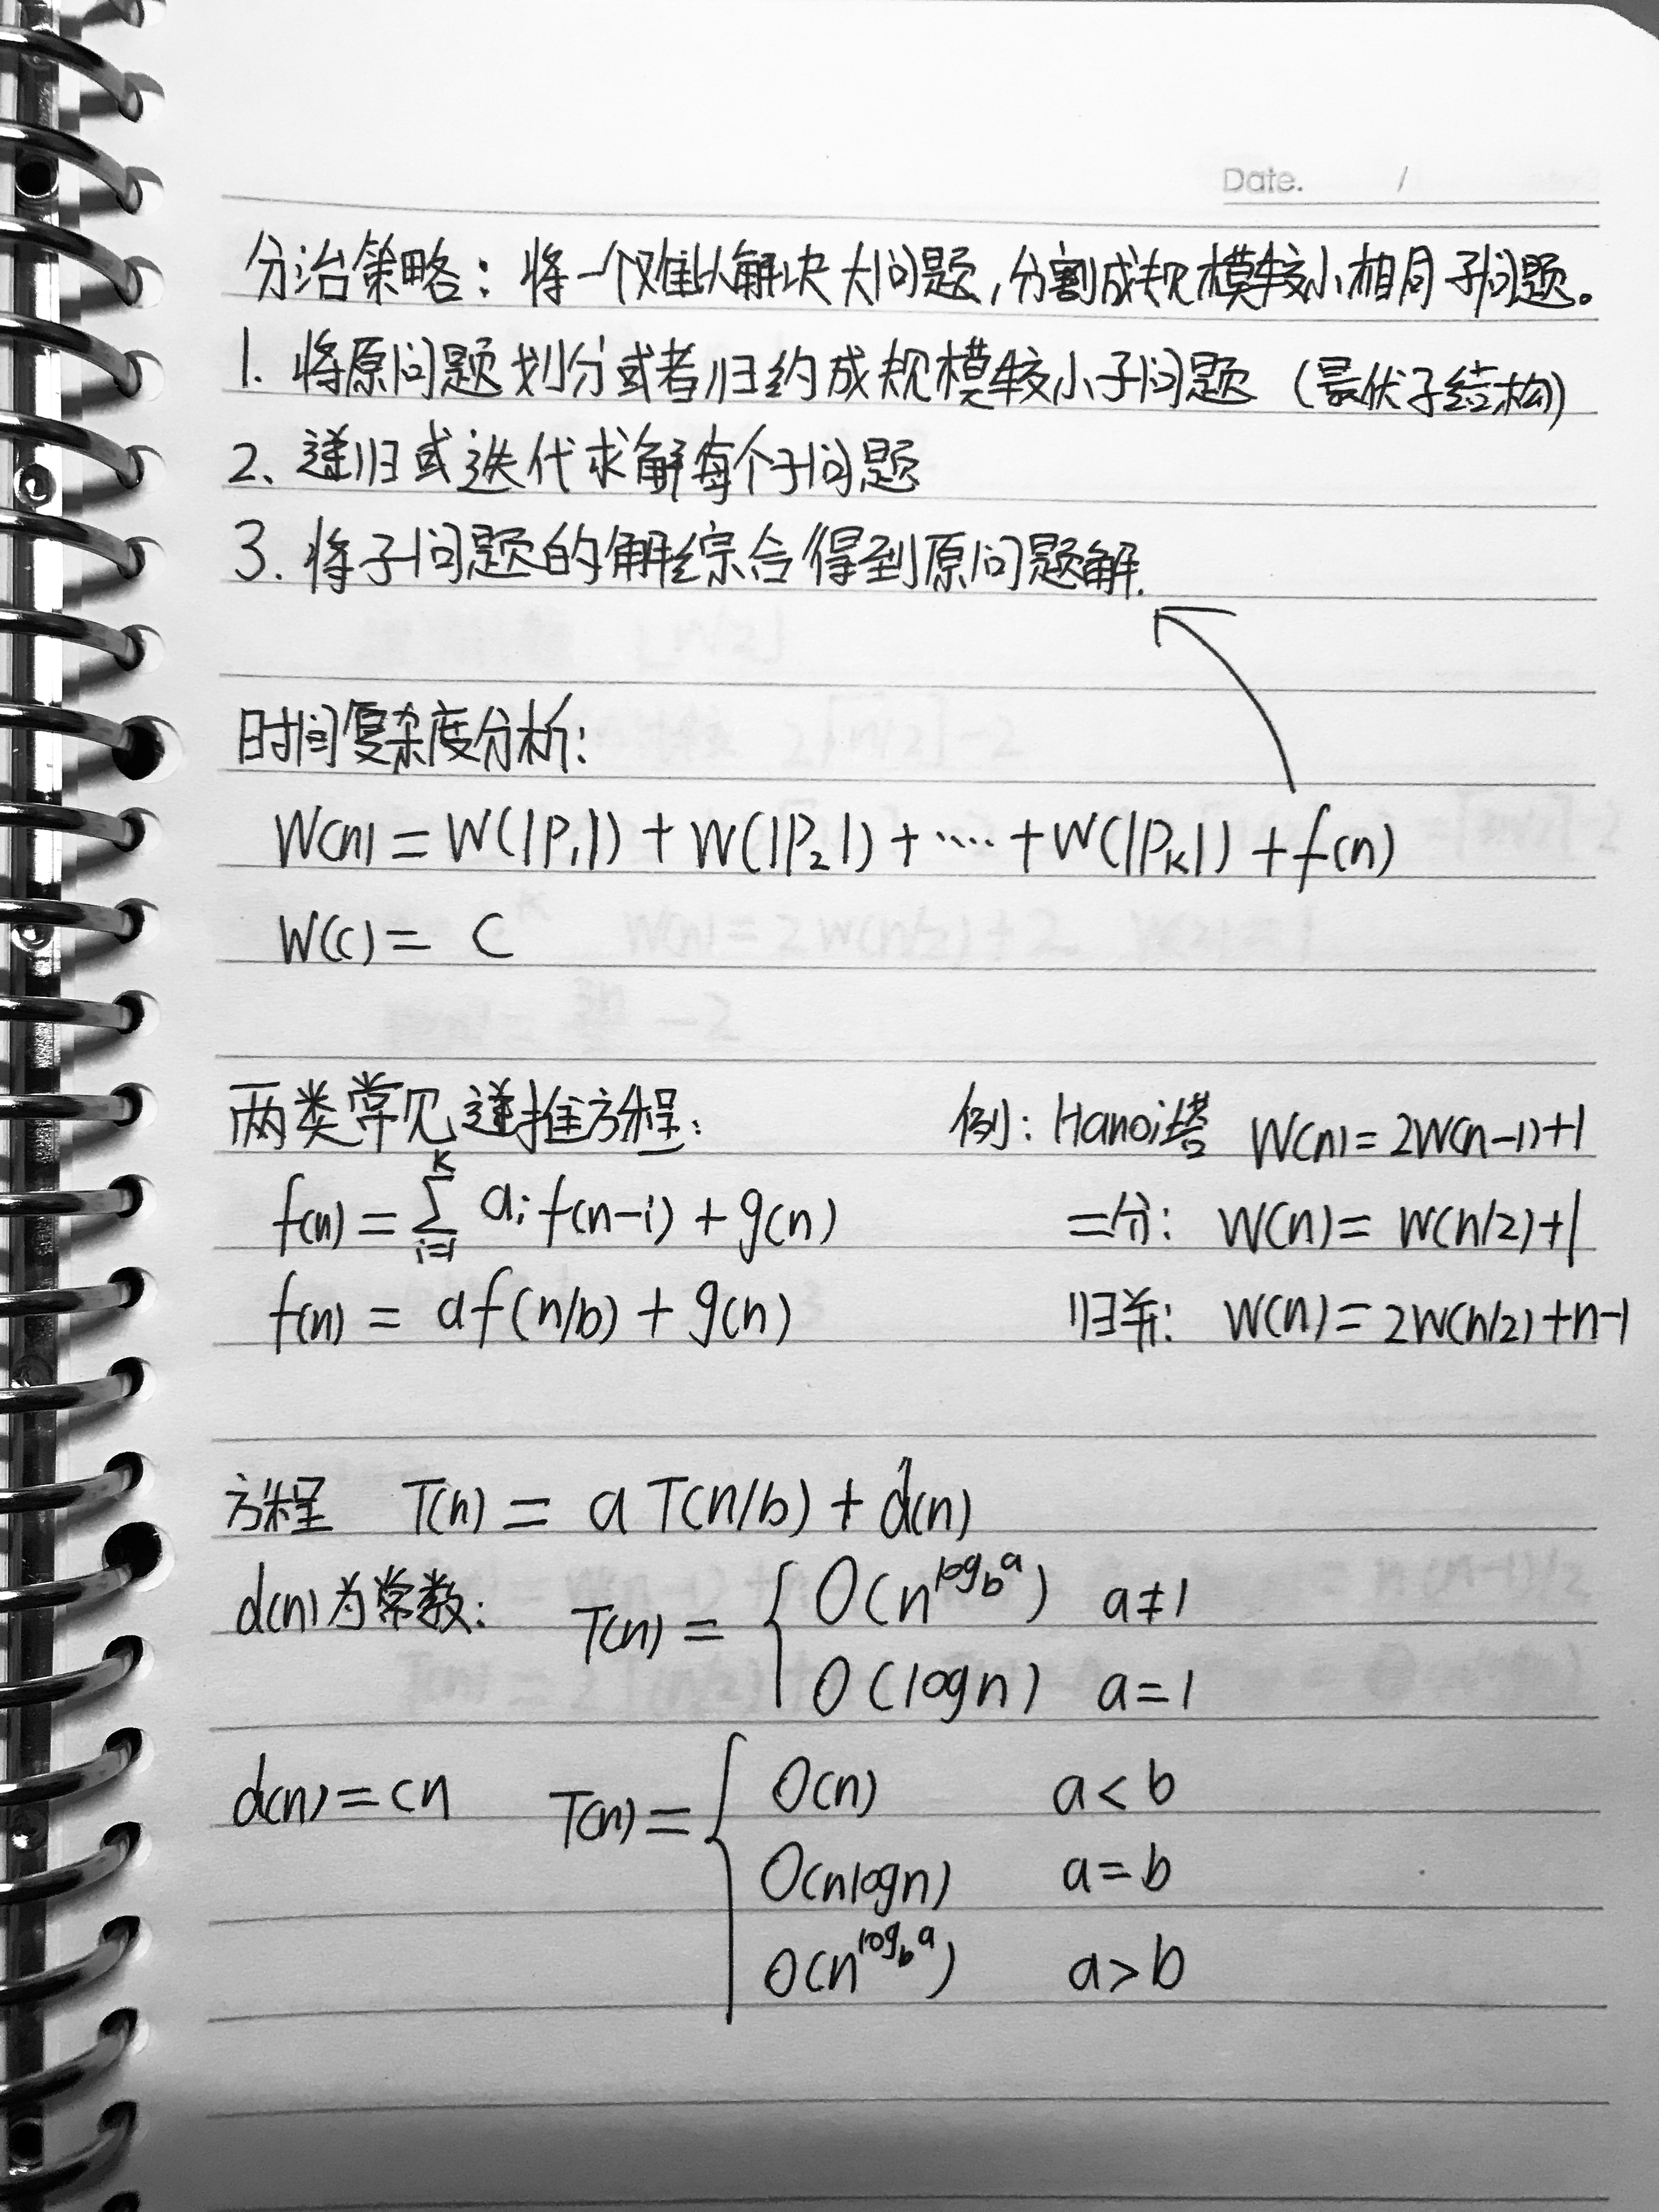 Date. /
分治策略：将一个难以解决大问题，分割成规模较小相同子问题。
1. 将原问题划分或者归约成规模较小子问题（最优子结构）
2、递归或迭代求解每个子问题
3. 将子问题的解综合得到原问题解.
时间复杂度分析：
W(n) = W(|P₁|) + W(|P₂|) + ···· + W(|Pₖ|) + f(n)
W(c) = C
两类常见递推方程： 例：Hanoi塔 W(n) = 2W(n-1)+1
f(n) = ∑ᵢ₌₁ᴷ aᵢ f(n-i) + g(n) 二分： W(n) = W(n/2)+1
f(n) = af(n/b) + g(n) 归并： W(n) = 2W(n/2)+n-1
方程 T(n) = a T(n/b) + d(n)
d(n)为常数： T(n) = { O(n^{log_b a}) a≠1
O(logn) a=1
d(n) = cn T(n) = { O(n) a < b
O(nlogn) a = b
O(n^{log_b a}) a > b